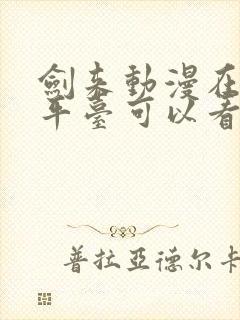 劍来動漫在
平臺可以看
普拉亞德尔卡